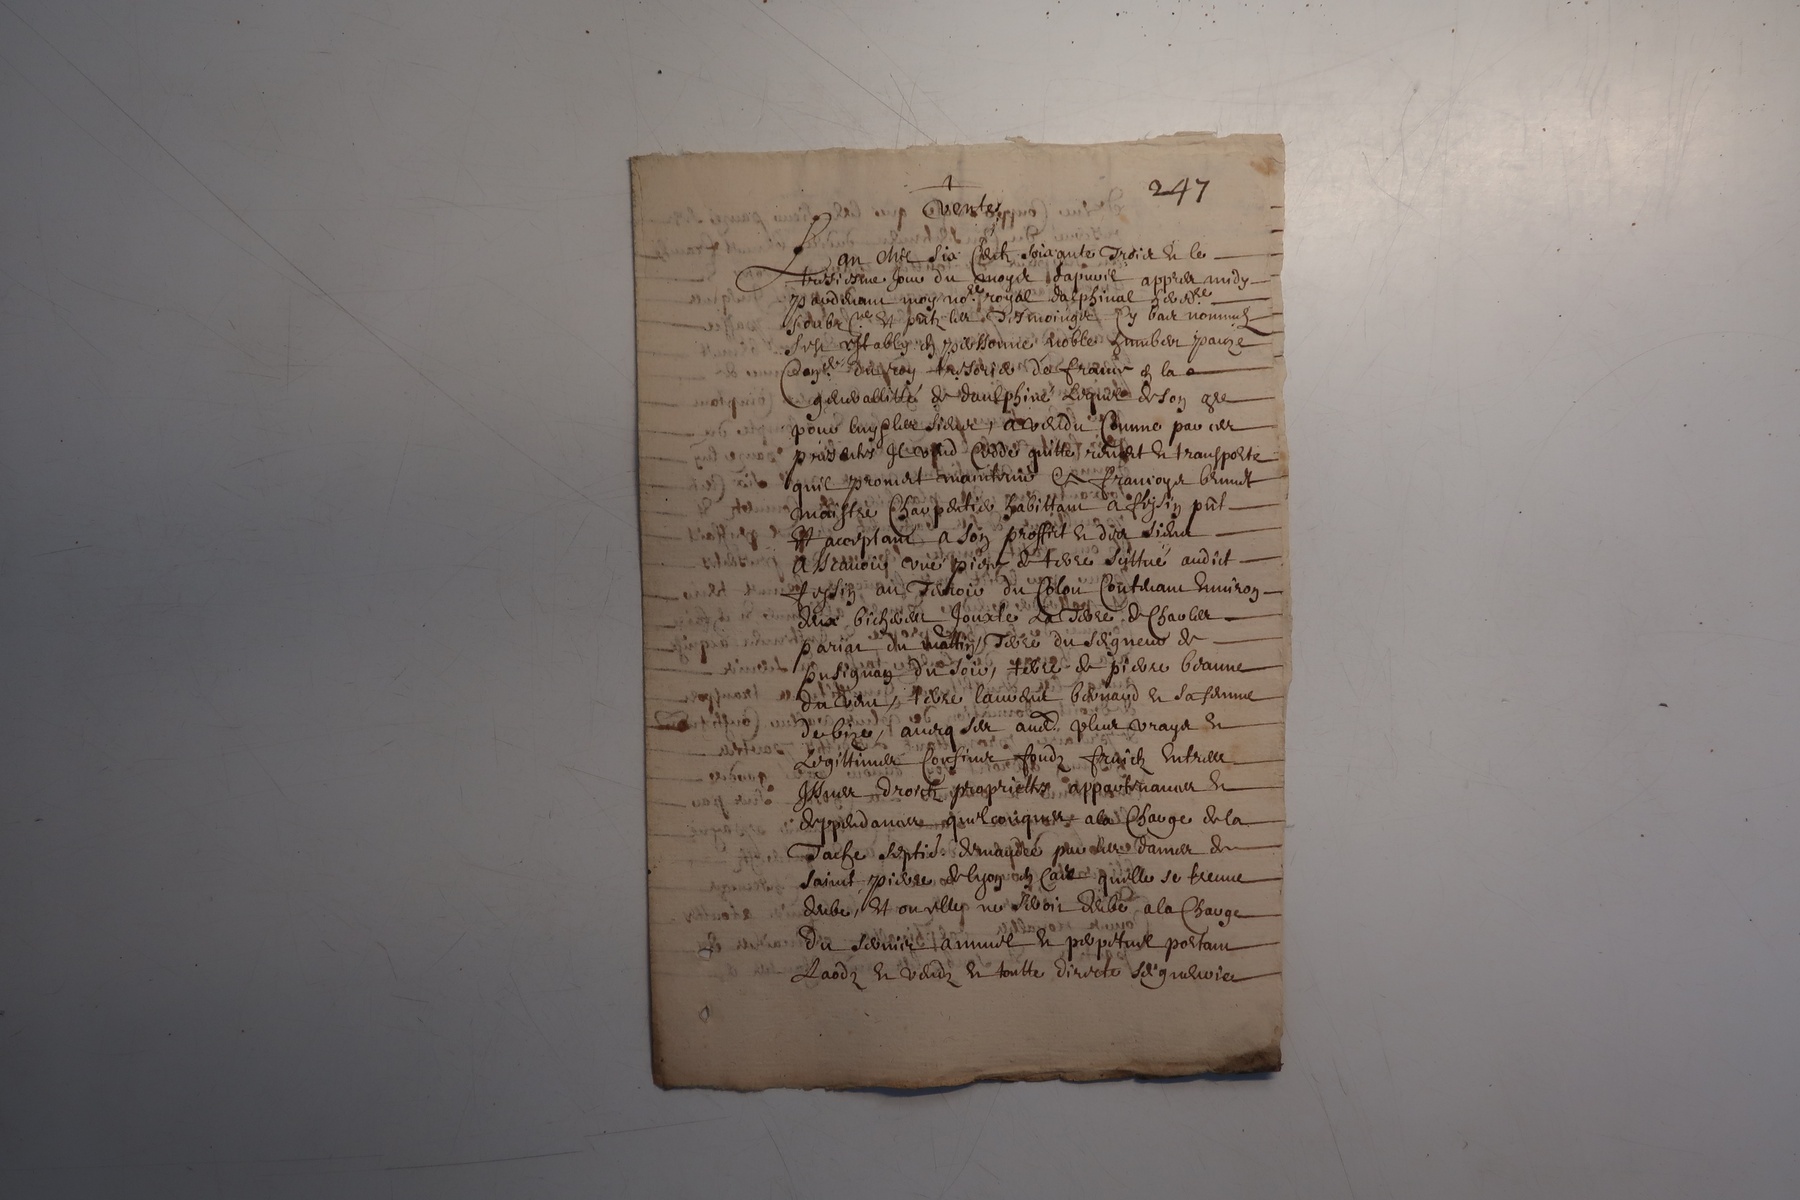 247
Vente
L an mil six Cent soixante Trois et le
troisiesme Jour du moys apprès midy
pardevant moy no.re royal dalphinal
soubz.né et p̃ntz les Tesmoings Cy bas nommez
sest estably en personne noble humbert
Con.er du roy tresorier de france en la
generallitté de daulphiné Lequel de son gre
pour luy et les siens, a vendu Comme par ces
présentes Il vend Cedde quitte remet et transporte
quil promet maintenir a françoys benoit
maistre Charpentier habittant a feysin p̃nt
et acceptant a son proffit et des siens
assavoir une piece de terre syttué audict
feysin au Terroir du Colon Contenant Environ
deux bicherées Jouxte La Terre de Charles
pariat du mattin, Terre du seigneur de
pusignan du soir, terre de pierre
du vent, terre laurent bernard et sa femme
de bize, avecq ses aud. plus vrays et
Legittimes Confins fondz fruictz Entrées
Issues droictz proprietés appartenances et
deppendances quelconques a la Charge de la
Tache demandée par les dames de
saint pierre de lyon en Cas quelle se treuve
debue, et ou elle ne seroit debue a la Charge
Du annuel et perpetuel portant
Laodz et vendz et toutte directe seigneurie